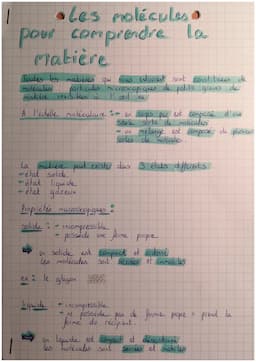 Les molécules
pour comprendre la
matière
Toutes les matières qui nous entourent sont constituées de
molécules : particules microscopiques de petits grains de
matière invisibles à l'œil nu
A l'échelle moléculaire : un corps pur est composé d'une
seule sorte de molécules
un mélange est composé de plusieurs
sortes de molécules
La matière peut exister dans 3 états différents
- état solide
- état liquide
- état gazeux
Propriétés macroscopiques :
solide : - incompressible
- possède une forme propre
un solide est compact et ordonné
les molécules sont serrées et immobiles
ex : le glaçon
liquide - incompressible
- ne possède pas de forme propre = prend la
forme du récipient.
un liquide est compact et désordonné
les molécules sont serrées et mobiles